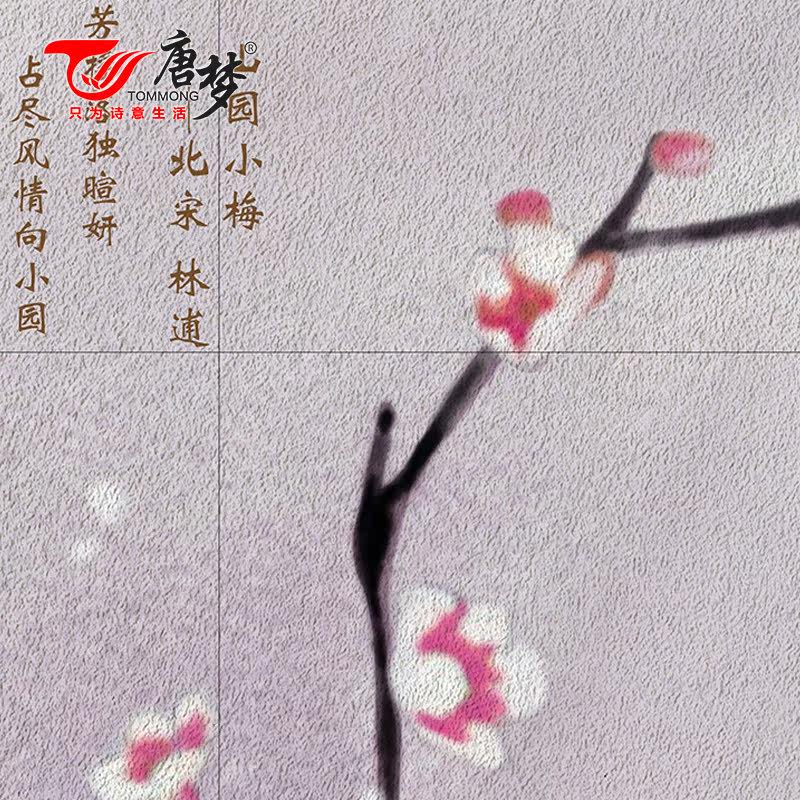 唐梦®
TOMMONG
只为诗意生活
园小梅
北宋 林逋
芳摇落独暄妍
占尽风情向小园